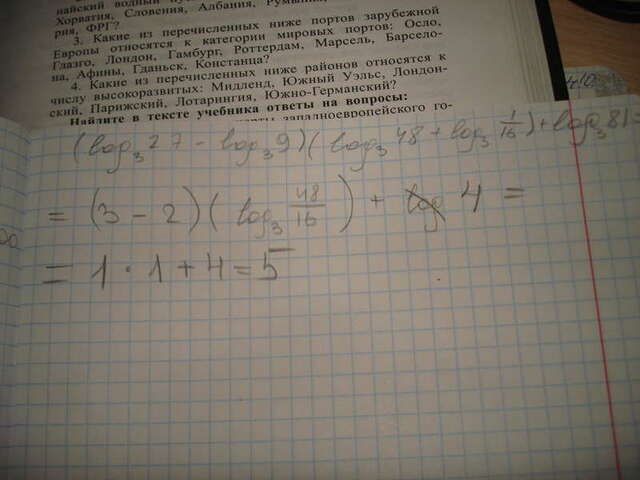 найский водный
Хорватия, Словения, Албания, Румыния,
рия, ФРГ?
3. Какие из перечисленных ниже портов зарубежной
Европы относятся к категории мировых портов: Осло,
Глазго, Лондон, Гамбург, Роттердам, Марсель, Барсело-
на, Афины, Гданьск, Констанца?
4. Какие из перечисленных ниже районов относятся к
числу высокоразвитых: Мидленд, Южный Уэльс, Лондон-
ский, Парижский, Лотарингия, Южно-Германский?
Найдите в тексте учебника ответы на вопросы:
западноевропейского го-
(log₃27 - log₃9)(log₃48 + log₃ 1/16) + log₃81 =
= (3 - 2)(log₃ 48/16) + log 4 =
= 1 · 1 + 4 = 5